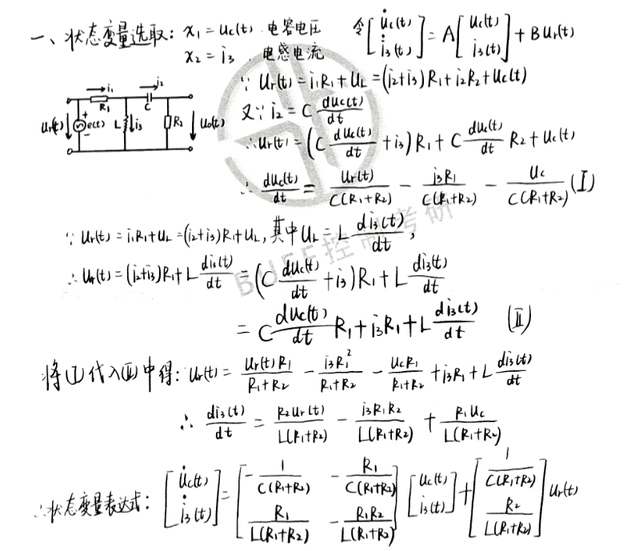 一、状态变量选取: x₁ = u_c(t) 电容电压 令[u̇_c(t) i̇₃(t)] = A[u_c(t) i₃(t)] + B u_r(t)
x₂ = i₃, 电感电流
∵ u_r(t) = i₁R₁ + u_L = (i₂+i₃)R₁ + i₂R₂ + u_c(t)
i₁ R₁ i₂ C u_r(t) e(t) + − L i₃ R₂ u_o(t)
又∵ i₂ = C du_c(t)/dt
∴ u_r(t) = (C du_c(t)/dt + i₃)R₁ + C du_c(t)/dt R₂ + u_c(t)
∴ du_c(t)/dt = u_r(t)/C(R₁+R₂) − i₃R₁/C(R₁+R₂) − u_c/C(R₁+R₂) (I)
∵ u_r(t) = i₁R₁ + u_L = (i₂+i₃)R₁ + u_L, 其中 u_L = L di₃(t)/dt,
∴ u_r(t) = (i₂+i₃)R₁ + L di₃(t)/dt = (C du_c(t)/dt + i₃)R₁ + L di₃(t)/dt
= C du_c(t)/dt R₁ + i₃R₁ + L di₃(t)/dt (II)
将(I)代入(II)中得: u_r(t) = u_r(t)R₁/R₁+R₂ − i₃R₁²/R₁+R₂ − u_cR₁/R₁+R₂ + i₃R₁ + L di₃(t)/dt
∴ di₃(t)/dt = R₂u_r(t)/L(R₁+R₂) − i₃R₁R₂/L(R₁+R₂) + R₁u_c/L(R₁+R₂)
∴状态变量表达式: [u̇_c(t) i̇₃(t)] = [−1/C(R₁+R₂) −R₁/C(R₁+R₂) R₁/L(R₁+R₂) −R₁R₂/L(R₁+R₂)] [u_c(t) i₃(t)] + [1/C(R₁+R₂) R₂/L(R₁+R₂)] u_r(t)